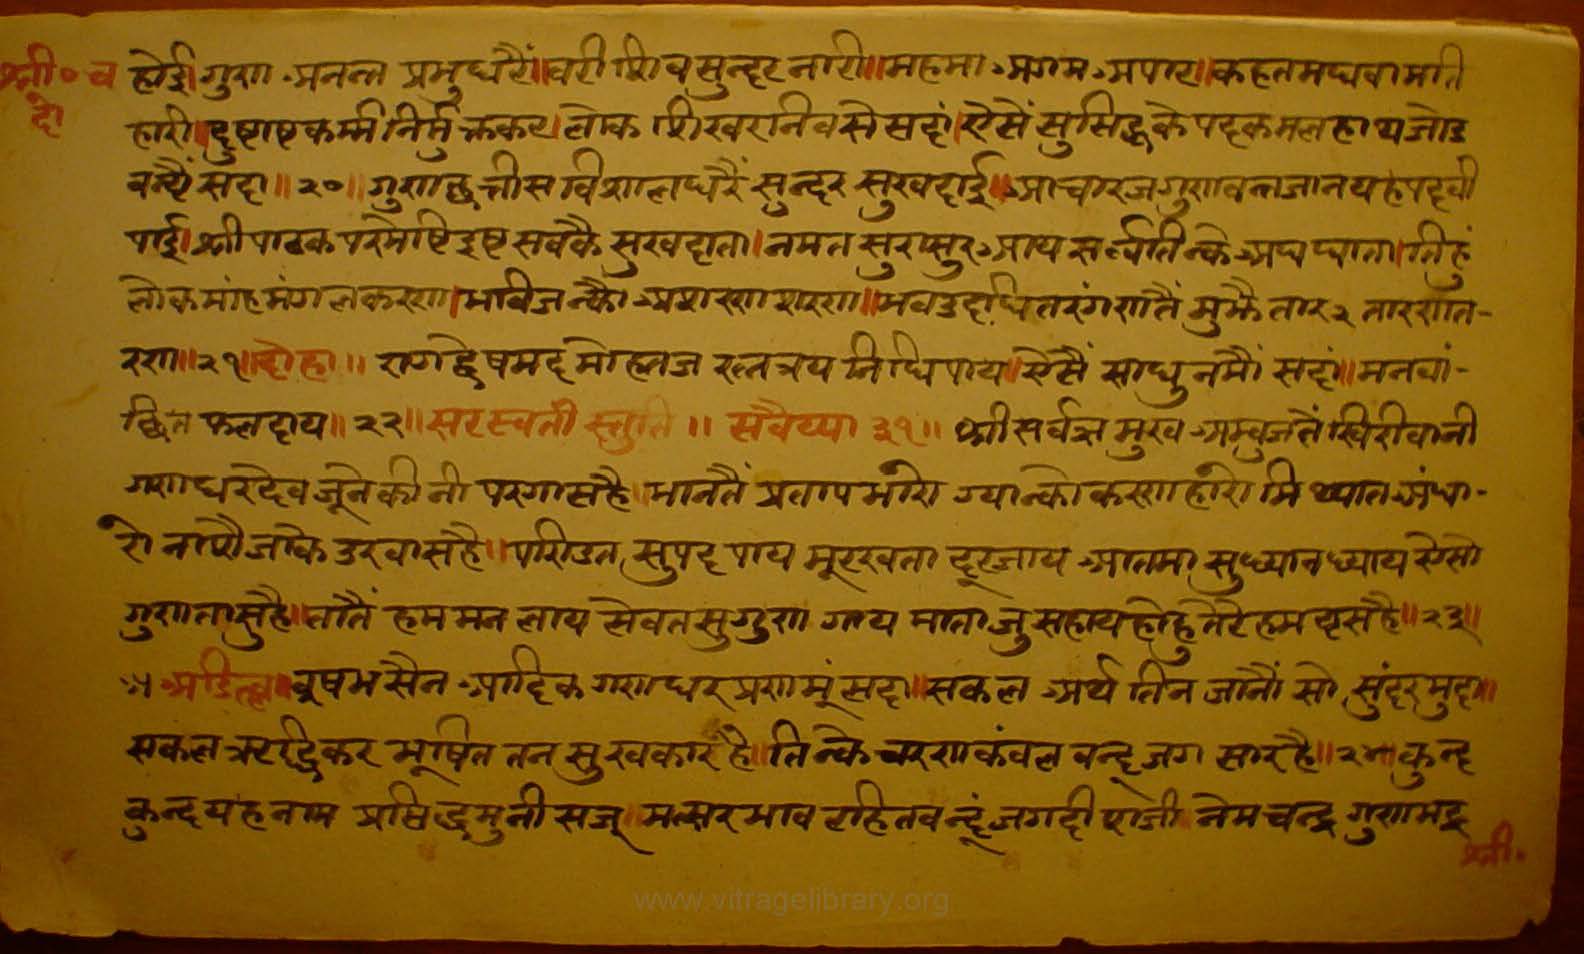 श्री॰ च
दो
होई।गुण अनन्त प्रभु धरैं॥वरी शिव सुन्दर नारी॥महमा अगम अपार॥कहत मघवा मति
हारी।दुष्टाष्ट कर्म्म निर्मुक्त कर।लोक शिखर निवसे सदां।ऐसैं सुसिद्ध के पद कमल हाथ जोड
वन्दौं सदा॥२०॥गुण छत्तीस विशाल धरैं सुन्दर सुखदाई॥आचारज गुणवन्त जानयह पदवी
पाई।श्री पाठक परमेष्टि इष्ट सबकै सुखदाता।नमत सुरासुर आय सर्व्व तिन्के अघ घाता।तिहुं
लोक मांह मंगल करण।भविजन्कौ अशरण शरण॥भव उदधि तरंगण तैं मुझै तार२ तारणत-
रण॥२१॥दोहा॥रागद्वेष मद मोह तज रत्नत्रय निधि पाय।ऐसैं साधु नमौं सदां॥मनवां-
छित फलदाय॥२२॥सरस्वती स्तुति॥सवैय्या ३१॥श्री सर्वज्ञ मुख अम्बुज तैं खिरी वानी
गणधर देव जूने कीनी परगास है।भानतैं प्रताप भारो ग्यान्को करणहारो मिथ्यात अंधा-
रो नाशै जाकै उरवास है॥पण्डित सुपद पाय मूरखता दूर जाय आतमा सुध्यान ध्याय ऐसो
गुण तासु है॥तातैं हम मन लाय सेवत सुगुण गाय माता जु सहाय होहु तेरे हम दास है॥२३॥
अडिल्ल॥वृषभसैन आदिक गणधर प्रणमूं सदा॥सकल अर्थ तिन जानौं सो सुंदर मुदा॥
सकल ऋद्धि कर भूषित तन सुखकार है॥तिन्के चरण कंवल वन्दू जग सार है॥२४॥कुन्द
कुन्द यह नाम प्रसिद्ध मुनीस जू॥मत्सर भाव रहित वन्दूं जगदीश जी॥नेमचन्द्र गुणभद्र
श्री॰
www.vitragelibrary.org